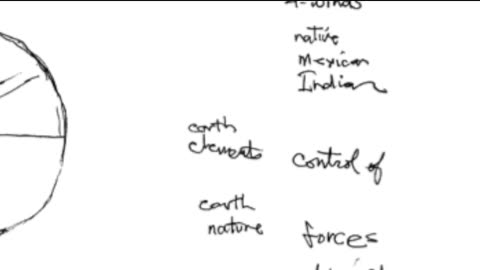 4-winds
native
Mexican
Indian
earth
elements
control of
earth
nature
forces